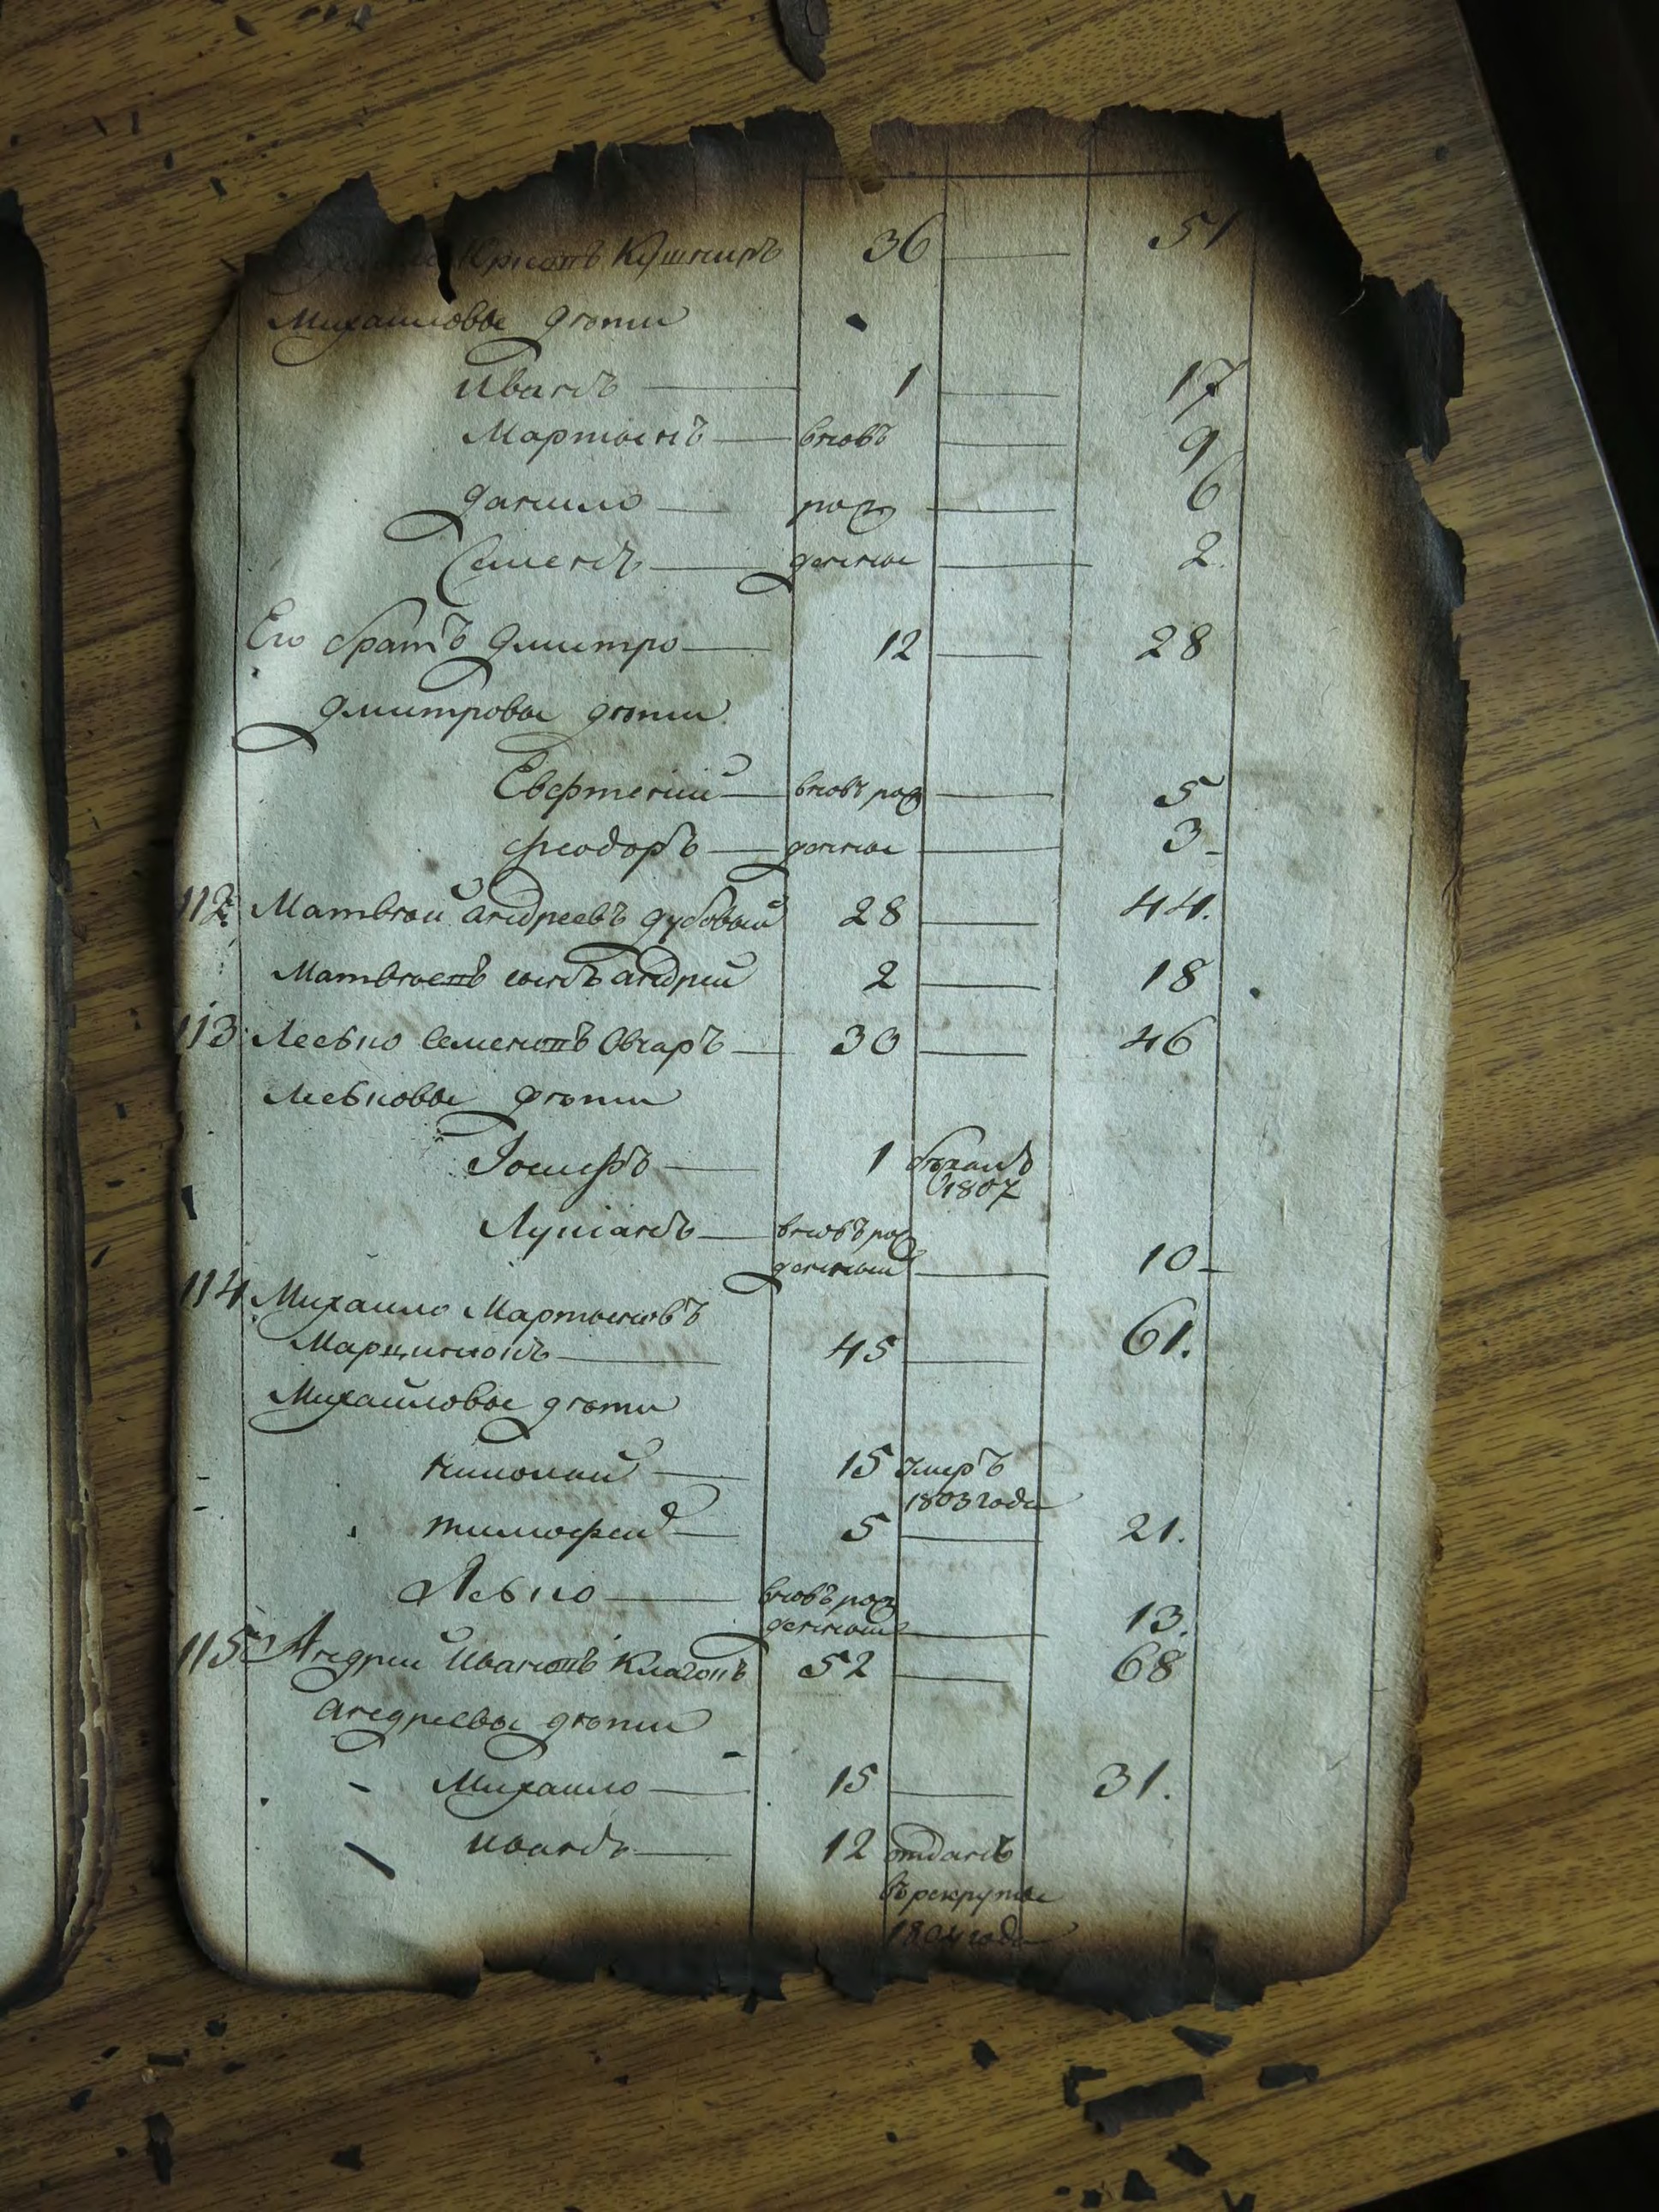 Юрковъ Кушниръ 36 51
Михайловы дѣти
Иванъ 1 17
Мартынъ вновь 9
Данило рож 6
Семенъ денные 2.
Его братъ Дмитро 12 28
Дмитровы дѣти
Евфтении вновь рож 5
Феодоръ денные 3
112 Матвѣй Андреевъ Дубовый 28 44.
Матвѣевъ сынъ Андрей 2 18
113 Левко Семеновъ Овчаръ 30 46
Левковы дѣти
Іосифъ 1 бѣжалъ
1807
Лукіанъ вновь рож
денный 10
114 Михайло Мартыновъ
Марцинюкъ 45 61.
Михайловы дѣти
Николай 15 умеръ
1803 года
Тимофей 5 21.
Левко вновь рож
денный 13.
115 Андрей Ивановъ 52 68
Андреевы дѣти
Михайло 15 31.
Иванъ 12 отданъ
въ рекруты
1804 года